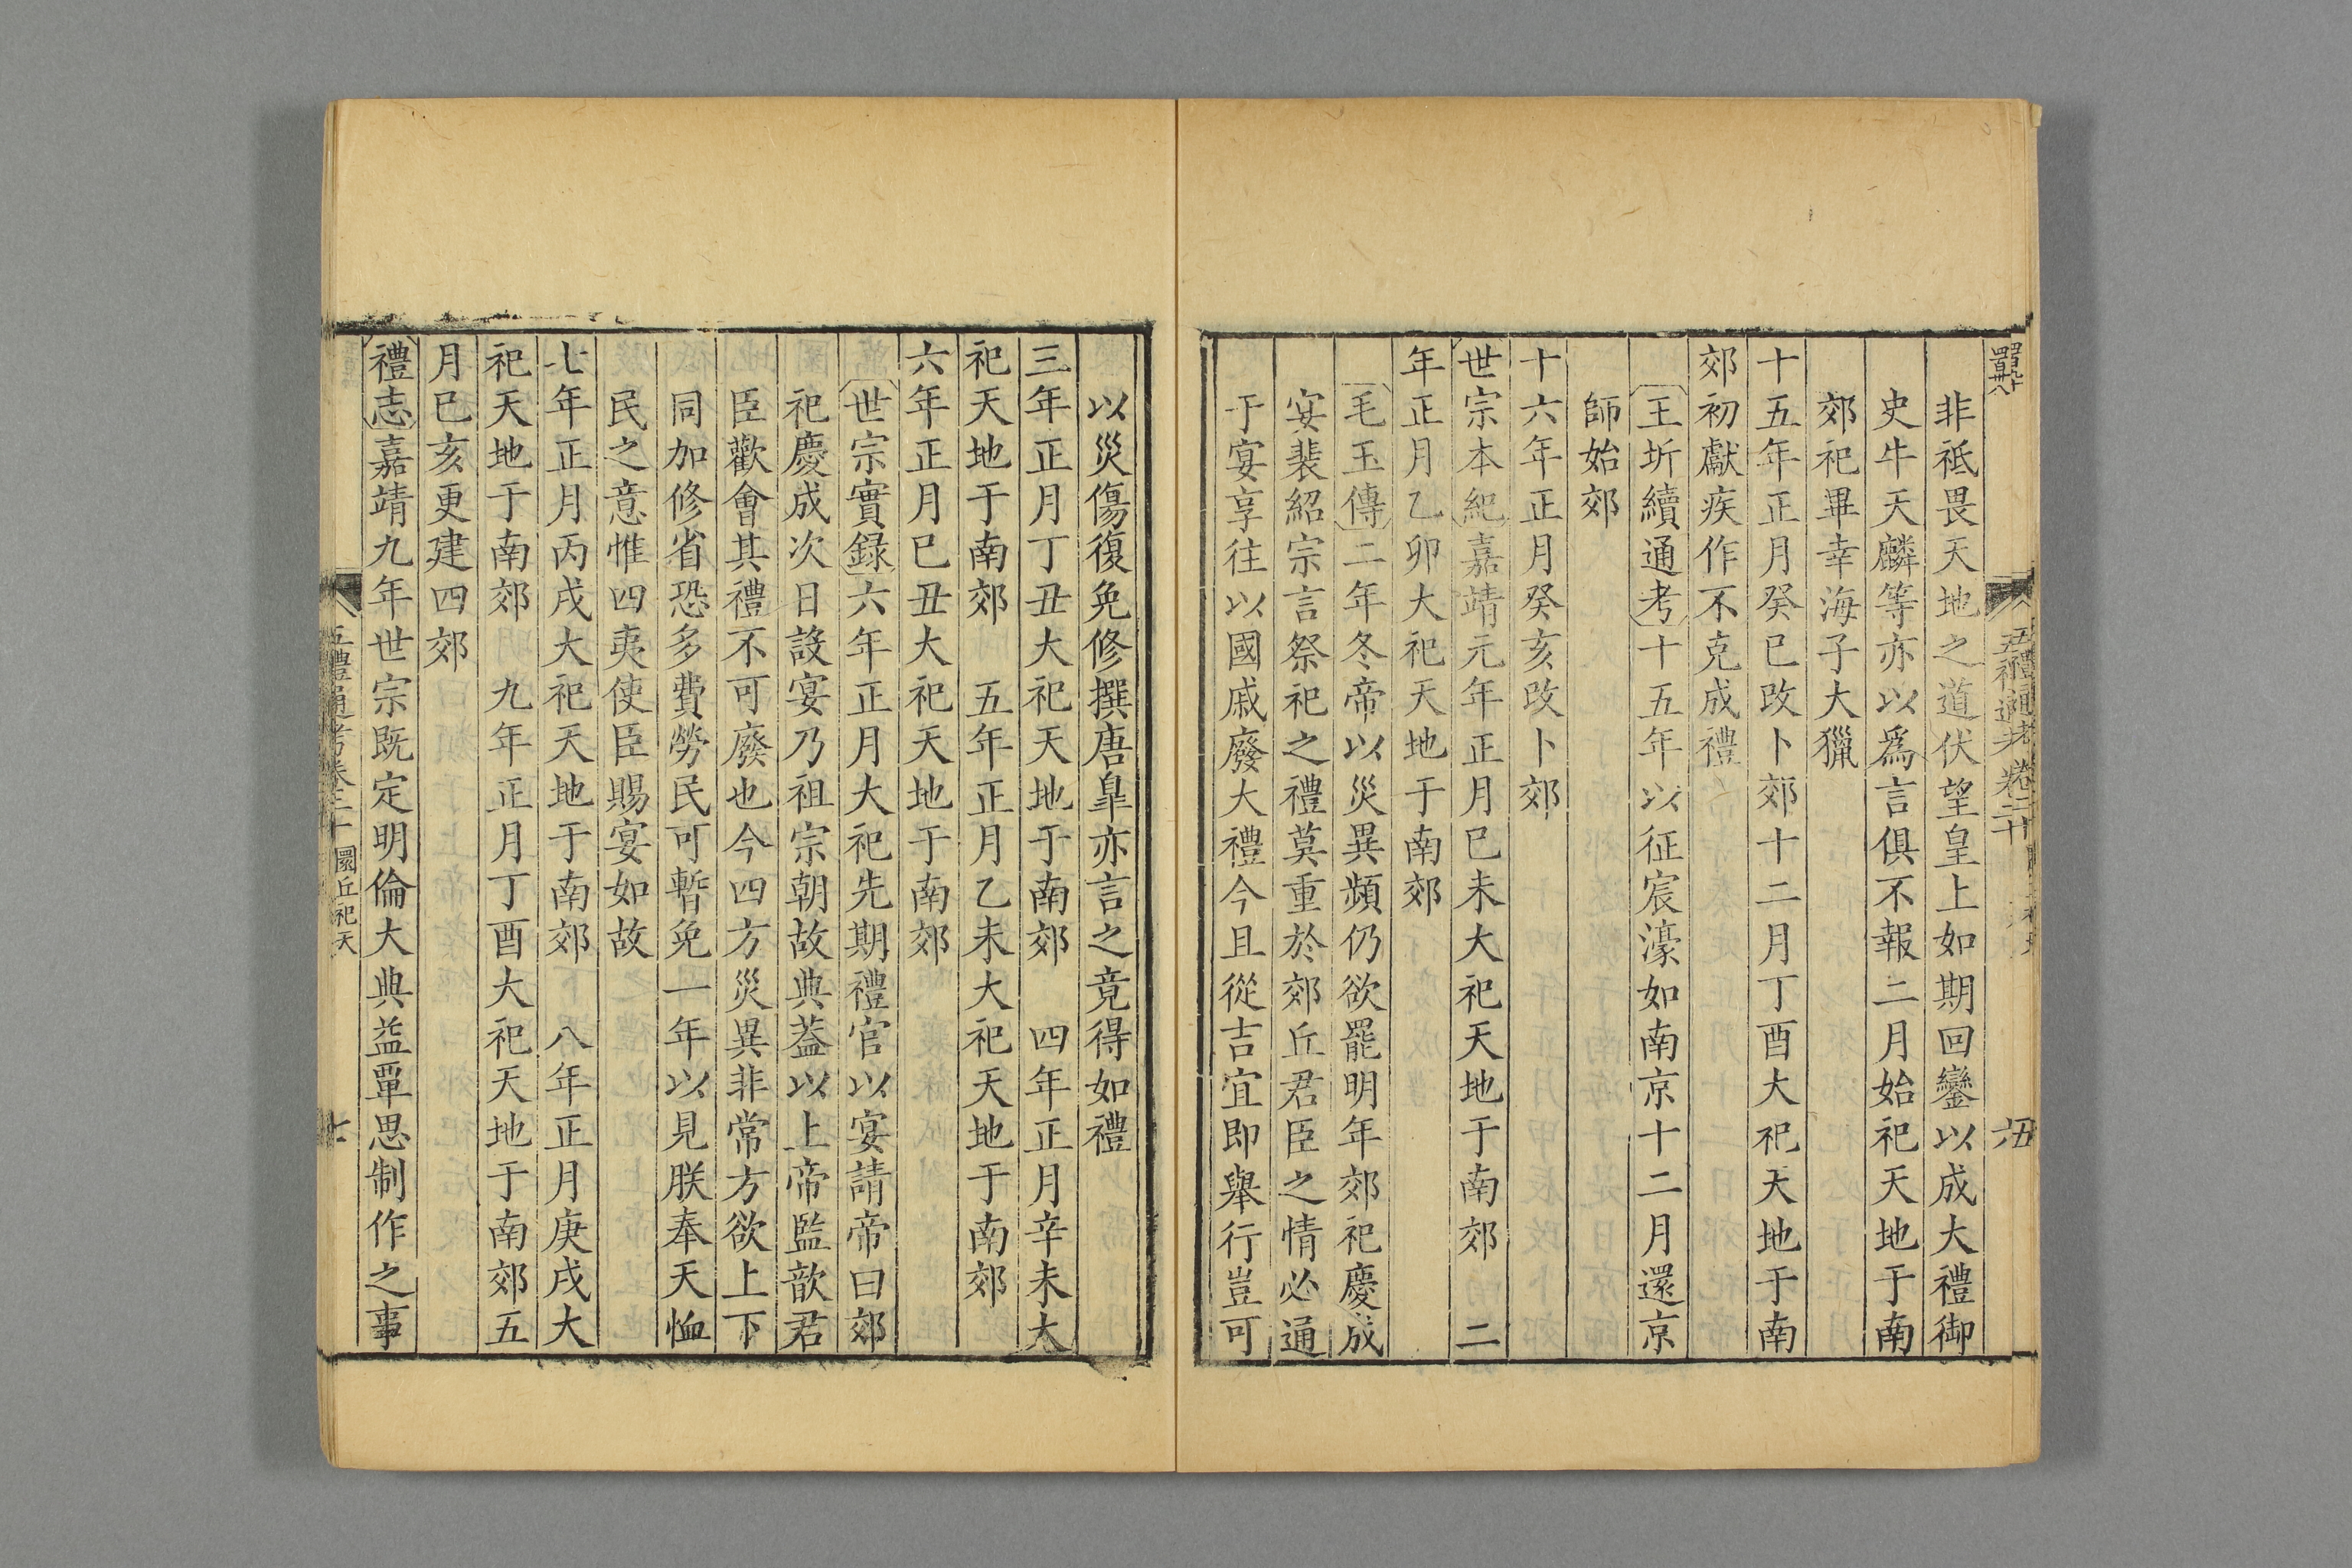 五禮通考卷二十
非祇畏天地之道伏望皇上如期回鑾以成大禮御
史牛天麟等亦以爲言俱不報二月始祀天地于南
郊祀畢幸海子大獵
十五年正月癸巳改卜郊十二月丁酉大祀天地于南
郊初獻疾作不克成禮
王圻續通考十五年以征宸濠如南京十二月還京
師始郊
十六年正月癸亥改卜郊
世宗本紀嘉靖元年正月己未大祀天地于南郊 二
年正月乙卯大祀天地于南郊
毛玉傳二年冬帝以災異頻仍欲罷明年郊祀慶成
宴裴紹宗言祭祀之禮莫重於郊丘君臣之情必通
于宴享往以國戚廢大禮今且從吉宜即舉行豈可
以災傷復免修撰唐臯亦言之竟得如禮
三年正月丁丑大祀天地于南郊 四年正月辛未大
祀天地于南郊 五年正月乙未大祀天地于南郊
六年正月己丑大祀天地于南郊
世宗實録六年正月大祀先期禮官以宴請帝曰郊
祀慶成次日設宴乃祖宗朝故典葢以上帝監歆君
臣歡會其禮不可廢也今四方災異非常方欲上下
同加修省恐多費勞民可暫免一年以見朕奉天恤
民之意惟四夷使臣賜宴如故
七年正月丙戌大祀天地于南郊 八年正月庚戌大
祀天地于南郊 九年正月丁酉大祀天地于南郊五
月己亥更建四郊
禮志嘉靖九年世宗既定明倫大典益覃思制作之事
五禮通考卷二十 圜丘祀天 七